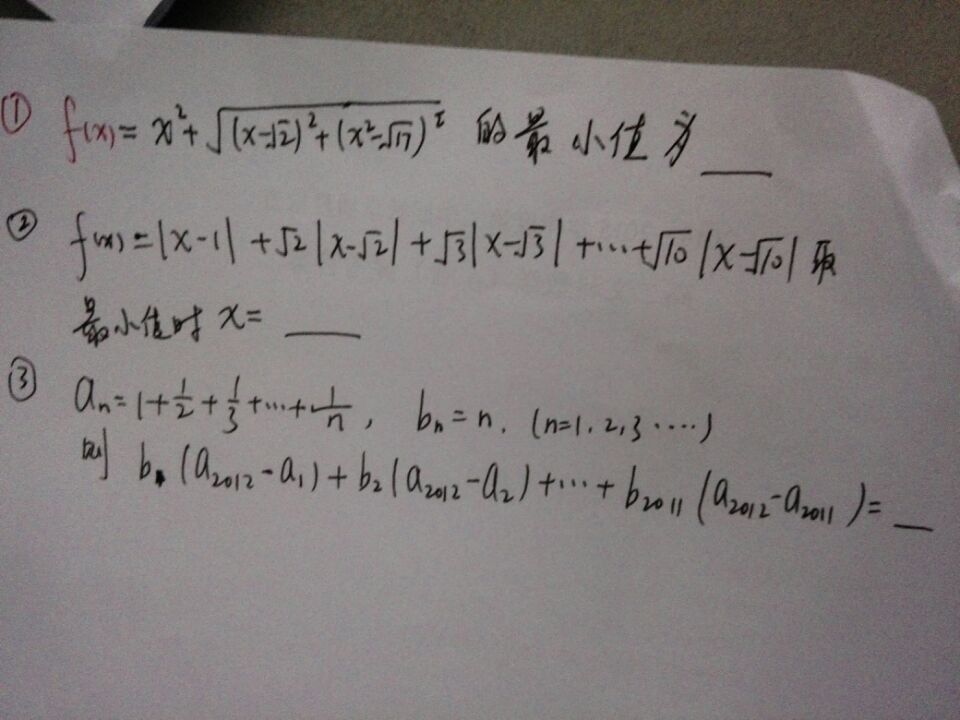 ① f(x)=x²+√((x-√2)²+(x²-√17)²) 的最小值为___
② f(x)=|x-1|+√2|x-√2|+√3|x-√3|+…+√10|x-√10| 取
最小值时 x=___
③ aₙ=1+1/2+1/3+…+1/n, bₙ=n. (n=1.2,3·····)
则 b₁(a₂₀₁₂-a₁)+b₂(a₂₀₁₂-a₂)+…+b₂₀₁₁(a₂₀₁₂-a₂₀₁₁)=__